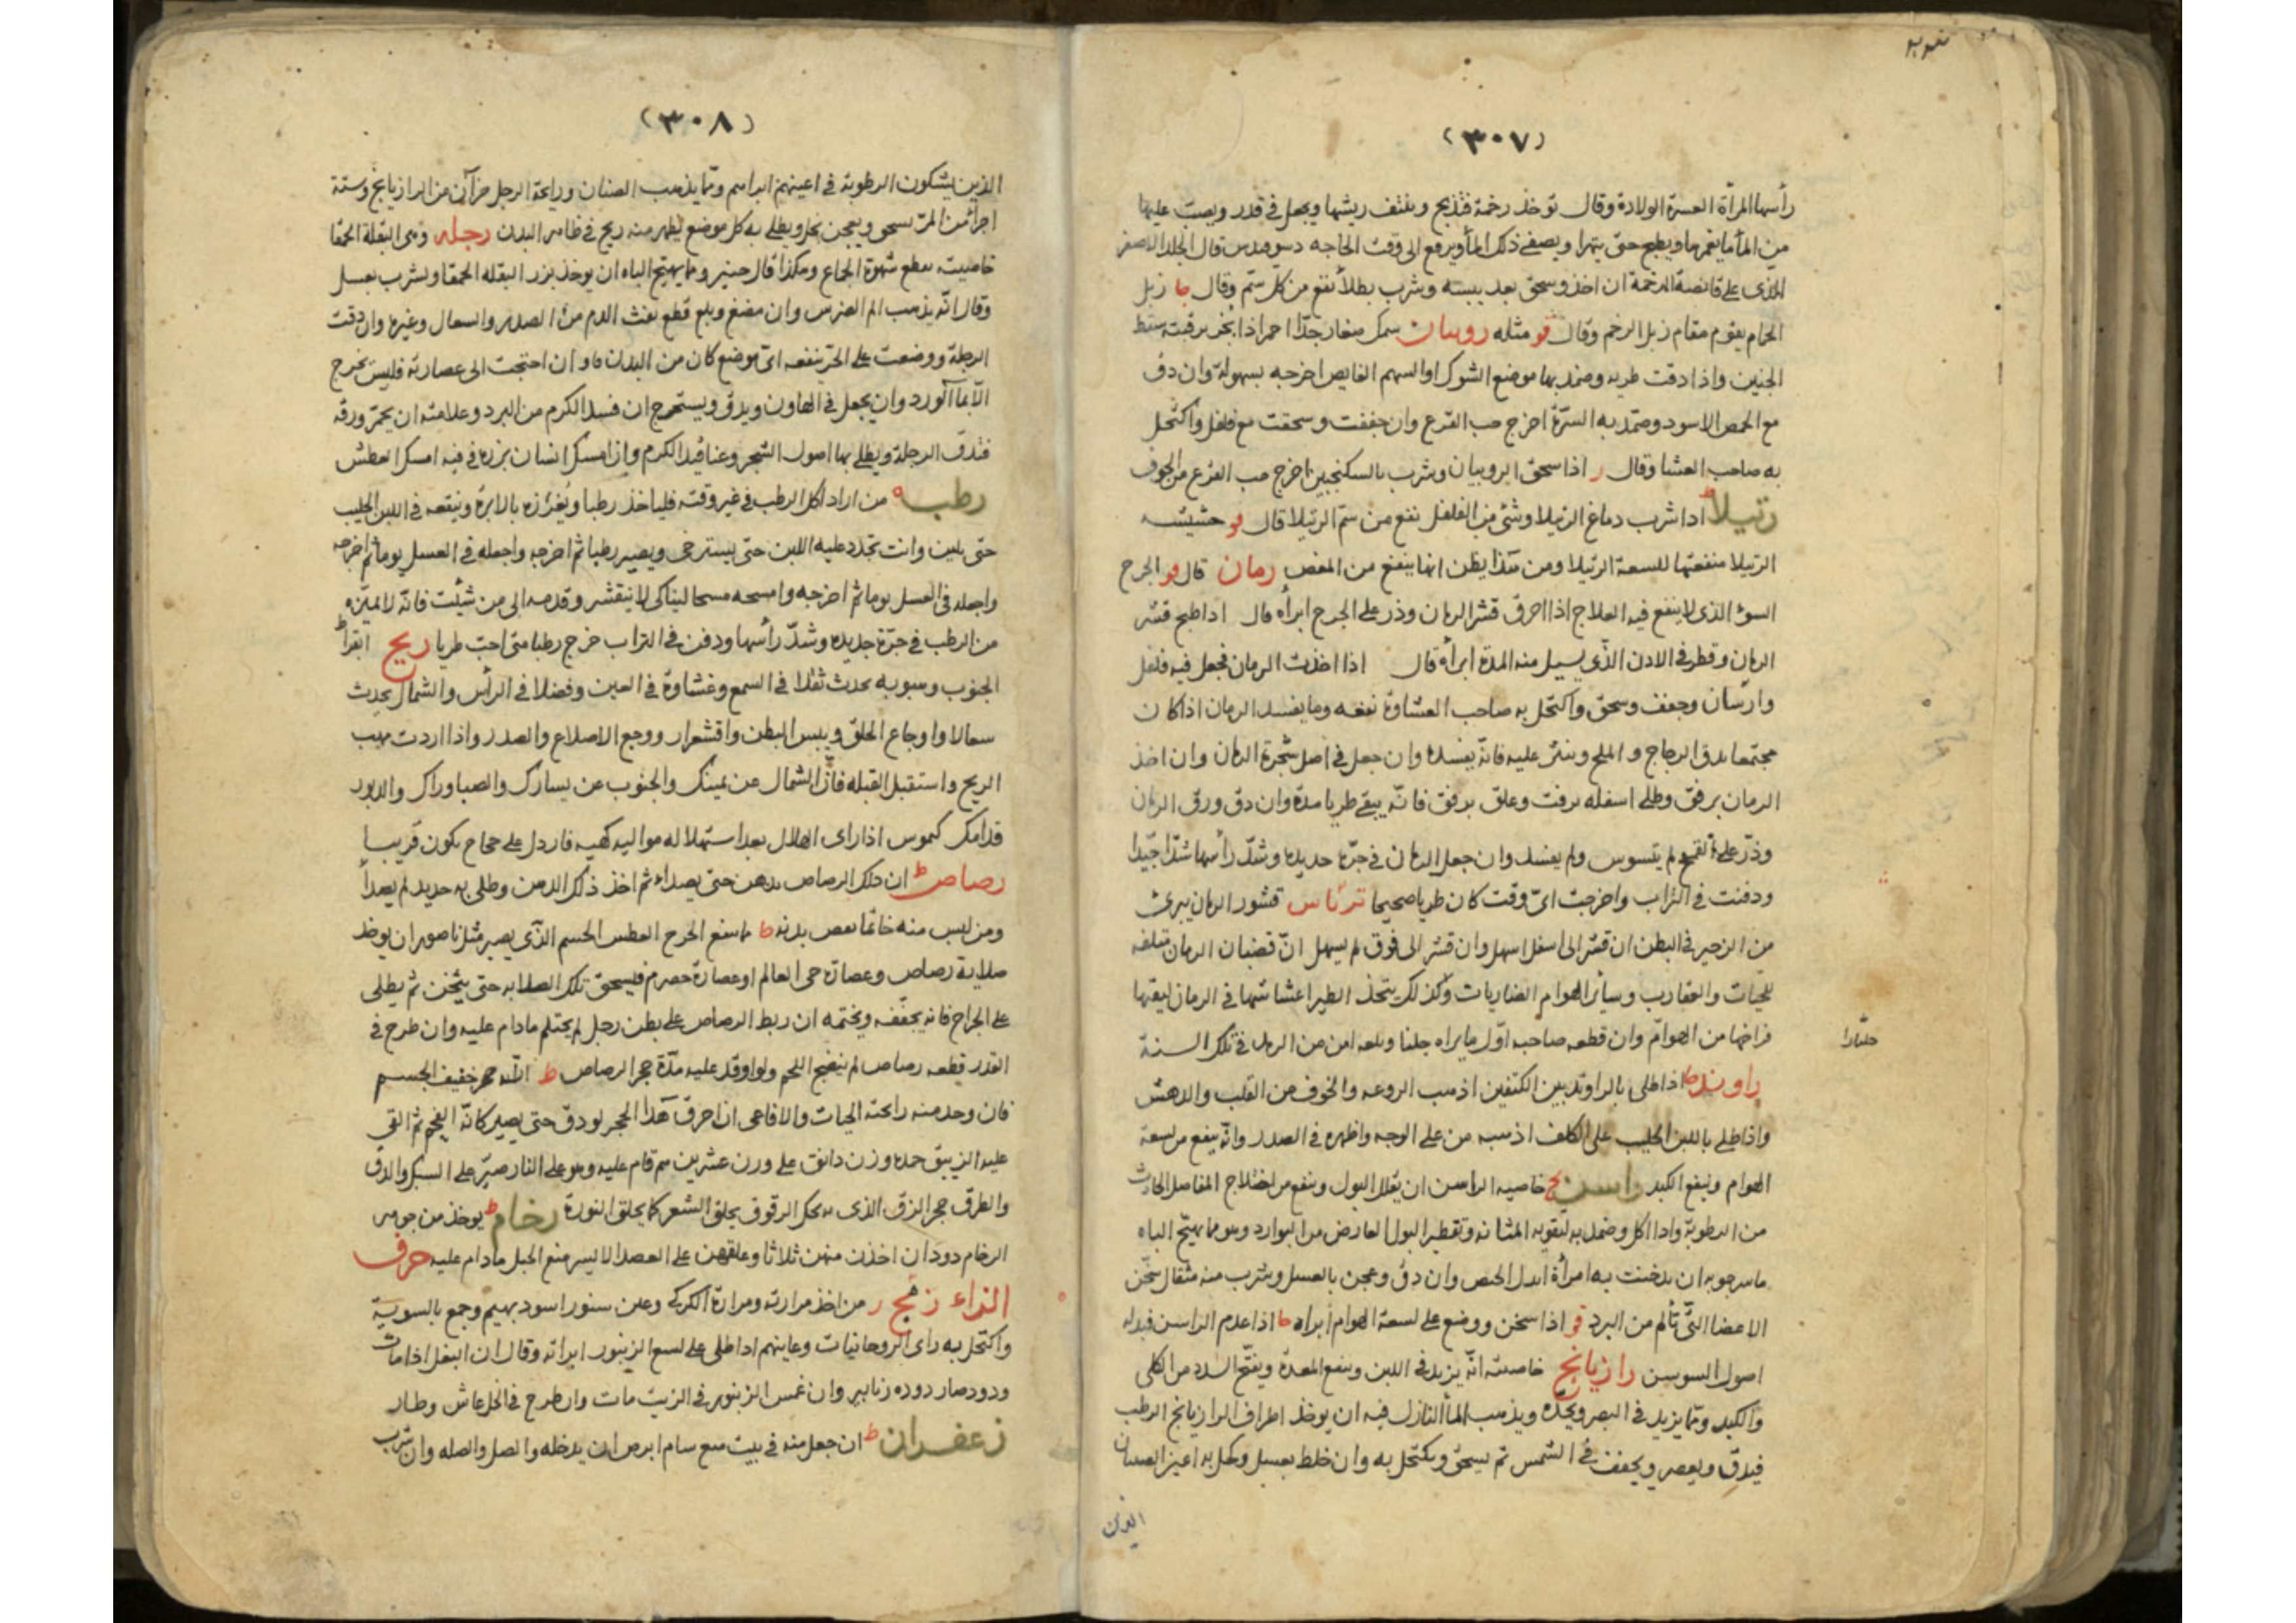 (٣٠٧)
رأسها المرأة العسرة الولادة وقال تؤخذ رخمة فتذبح وينتف ريشها ويجعل فى قدر ويصب عليها
من المأ مايغمرها ويطبخ حتى يتهرا ويصفى ذلك المأ ويرفع الى وقت الحاجه قال الجلد الاصفر
الذى على قانصة الرخمة ان اخذ وسحق بعد يبسه وشرب بطلأ نفع من كل سم وقال ما زبل
الحام يقوم مقام زبل الرخم وقال قو مثله روبيان سمك صغار جدا احمر اذا بخر برقته سقط
الجنين واذا دقت طريه وضمد بها موضع الشوك اوالسهم الغايص اخرجه بسهولة وان دق
مع الحمص الاسود وضمد به السرة اخرج حب القرع وان جففت وسحقت مع فلفل واكتحل
به صاحب العشا وقال ر اذا سحق الروبيان وشرب بالسكنجبين اخرج حب القرع من الجوف
رتيلا ط اذا شرب دماغ الرتيلا وشئ من الفلفل نفع من سم الرتيلا قال قو حشيشه
الرتيلا منفعتها للسعة الرتيلا ومن هذا يظن انها ينفع من المغص رمان قال قو الجرح
السوء الذى لاينفع فيه العلاج اذا احرق قشر الرمان وذر على الجرح ابرأه قال اذا طبخ قشر
الرمان وقطر فى الاذن الذى يسيل منه المدة ابرأه قال اذا اخذت الرمان فجعل فيه فلفل
وجفف وسحق واكتحل به صاحب الغشاوة نفعه ومايفسد الرمان اذا كان
مجتمعا بدق الزجاج و الملح وينثر عليه فانه يفسده وان جعل فى اصل شجرة الرمان وان اخذ
الرمان برفق وطلى اسفله بزفت وعلق برفق فانه يبقى طريا مدة وان دق ورق الرمان
وذر على القمح لم يتسوس ولم يفسد وان جعل الرمان فى جرة جديده وشد رأسها شدا جيدا
ودفنت فى التراب واخرجت اى وقت كان طريا صحيحا قشور الرمان يبرئ
من الزحير فى البطن ان قشر الى اسفل اسهل وان قشر الى فوق لم يسهل ان قضبان الرمان
للحيات والعقارب وسائر الهوام الضاريات وكذلك يتخذ الطير اعشاشها فى الرمان ليقيها
فراخها من الهوام وان قطعه صاحبه اول مايراه جلنا وبلعه امن من الرمد فى تلك السنة
جلنارا
راوند ط اذا طلى بالراوند بين الكتفين اذهب الروعه والخوف من القلب والدهش
واذا طلى باللبن الحليب على الكلف اذهبه من على الوجه واظهره فى الصدر وانه ينفع من لسعة
الهوام وينفع الكبد راسن ج خاصيه الراسن ان يقلل البول وينفع من اختلاج المفاصل الحادث
من الرطوبة واذا اكل وضمد به لتقويه المثانه وتقطير البول العارض من البوارد وهو مما يهيج الباه
ماسرجويه ان بدخنت به امرأة ادر الحيض وان دق وعجن بالعسل وشرب منه مثقال سخن
الاعضا التى تألم من البرد قو اذا سخن ووضع على لسعة الهوام ابراه ما اذا عدم الراسن فبدله
اصول السوسن رازيانج خاصيته انه يزيد فى اللبن وينفع المعدة ويفتح السدد من الكلى
والكبد ومما يزيد فى البصر ويحده ويذهب المأ النازل فيه ان يؤخذ اطراف الرازيانج الرطب
فيدق ويعصر ويجفف فى الشمس ثم يسحق ويكتحل به وان خلط بعسل وكحل به اعين الصبيان
الذين
(٣٠٨)
الذين يشكون الرطوبة فى اعينهم ابراهم ومما يذهب الصنان ورايحة الرجل جزآن من الرازيانج وستة
اجزأ من المر يسحق ويعجن بخل ويطلى به كل موضع يظهر منه ريح فى ظاهر البدن رجله وهى البقلة الحمقا
خاصيته يقطع شهوة الجماع وهكذا قال حنين ومما يهيج الباه ان يوخذ بزر البقله الحمقا ويشرب بعسل
وقال انه يذهب الم الضرس وان مضغ وبلع قطع نفث الدم من الصدر والسعال وغيره وان دقت
الرجلة ووضعت على الحر ينفعه اى موضع كان من البدن وان احتجت الى عصارته فليس يخرج
الا بمأ الورد وان يجعل فى الهاون ويدق ويستخرج ان فسد الكرم من البرد وعلامته ان يحمر ورقه
فتدق الرجلة ويطلى بها اصول الشجر وعناقيد الكرم وان امسك انسان بزره فى فيه امسك العطش
رطب من اراد اكل الرطب فى غير وقته فلياخذ رطبا ويغرزه بالابرة وينقعه فى اللبن الحليب
حتى يلين وانت تجدد عليه اللبن حتى يسترخى ويصير رطبا ثم اخرجه واجعله فى العسل يوما ثم اخرجه
واجعله فى العسل يوما ثم اخرجه وامسحه مسحا لينا كى لا ينقشر وقدمه الى من شئت فانه لا يميزه
من الرطب فى جرة جديده وشد رأسها ودفن فى التراب خرج رطبا متى احب طريا ريح ابقراط
الجنوب وهبوبه يحدث ثقلا فى السمع وغشاوة فى العين وفضلا فى الرأس والشمال يحدث
سعالا واوجاع الحلق ويبس البطن واقشعرار ووجع الاضلاع والصدر واذا اردت مهب
الريح واستقبل القبله فان الشمال عن يمينك والجنوب عن يسارك والصبا وراك والدبور
قدامك اذا راى الهلال بعد استهلاله
رصاص ط ان دلك الرصاص بدهن حتى يصداء ثم اخذ ذلك الدهن وطلى به حديد لم يصدأ
ومن لبس منه خاتما نقص بدنه ما
صلاية رصاص وعصارة حى العالم اوعصارة حصرم فيسحق تلك الصلابه حتى يثخن ثم يطلى
على الجراح فانه يجففه ويختمه ان ربط الرصاص على بطن رجل لم يحتلم مادام عليه وان طرح فى
القدر قطعه رصاص لم ينضج اللحم ولو اوقد عليه مدة حجر الرصاص ط انه حجر خفيف الجسم
فان وجد منه رائحة الحيات والافاعى اذا احرق هذا الحجر لو دق حتى يصير كانه الفحم ثم القى
عليه الزيبق وزن دانق على وزن عشرين قام عليه وهو على النار صبر على السبك والدق
والطرق حجر الزق الذى به يحك الرقوق يحلق الشعر كما يحلق النورة رخام ط يوخذ من جوهر
الرخام دود ان اخذت منهن ثلاثا وعلقهن على العضد الايسر منع الحبل مادام عليه حرف
الزاء زمج ر من اخذ مرارته ومرارة الكركى وعين سنور اسود بهيم وجمع بالسوية
واكتحل به راى الروحانيات وعاينهم اذا طلى على لسع الزنبور ابراته وقال ان البغل اذا مات
ودود صار دوده زنابير وان غمس الزنبور فى الزيت مات وان طرح فى الخل عاش وطار
زعفران ط ان جعل منه فى بيت منع سام ابرص ان يدخله وان شرب